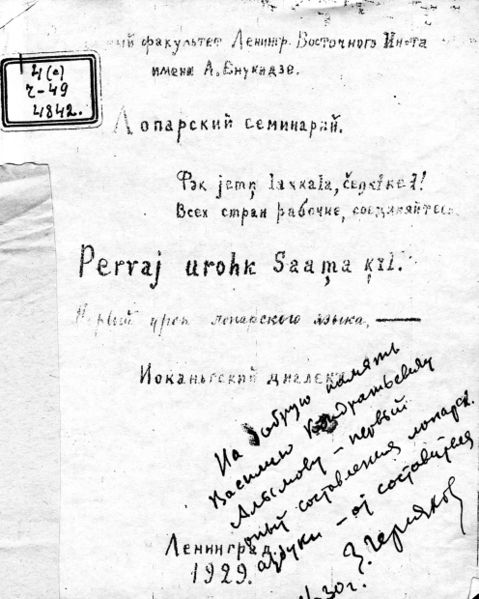 факультет Ленингр. Восточного Инст-та
имени А. Енукидзе.
4(с)
Ч-49
4842.
Лопарский семинарий.
Всех стран рабочие, соединяйтесь
Pervaj urohk Saaṃa ķīl.
Первый урок лопарского языка,
Иоканьгский диалект
На добрую память
Василию Кондратьевичу
Алымову – первый
опыт составления лопарск.
азбуки – от составителя
З. Черняков
Ленинград.
1929.
30 г.